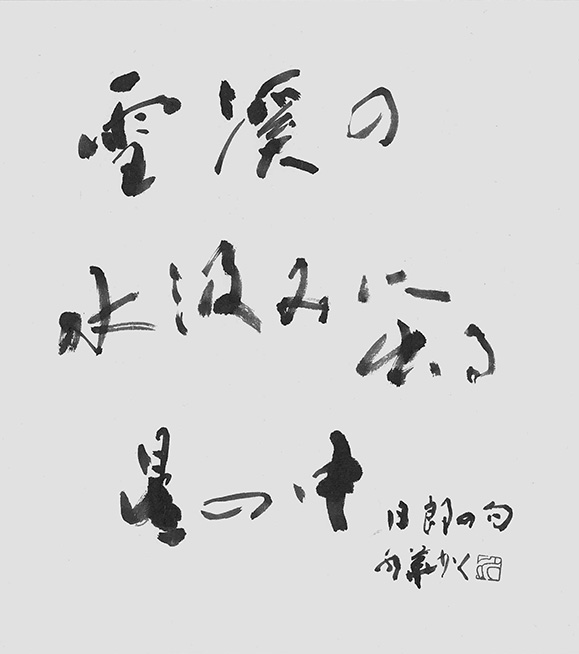 雪渓の
水汲みに
出る
星の中
日郎の句
かく